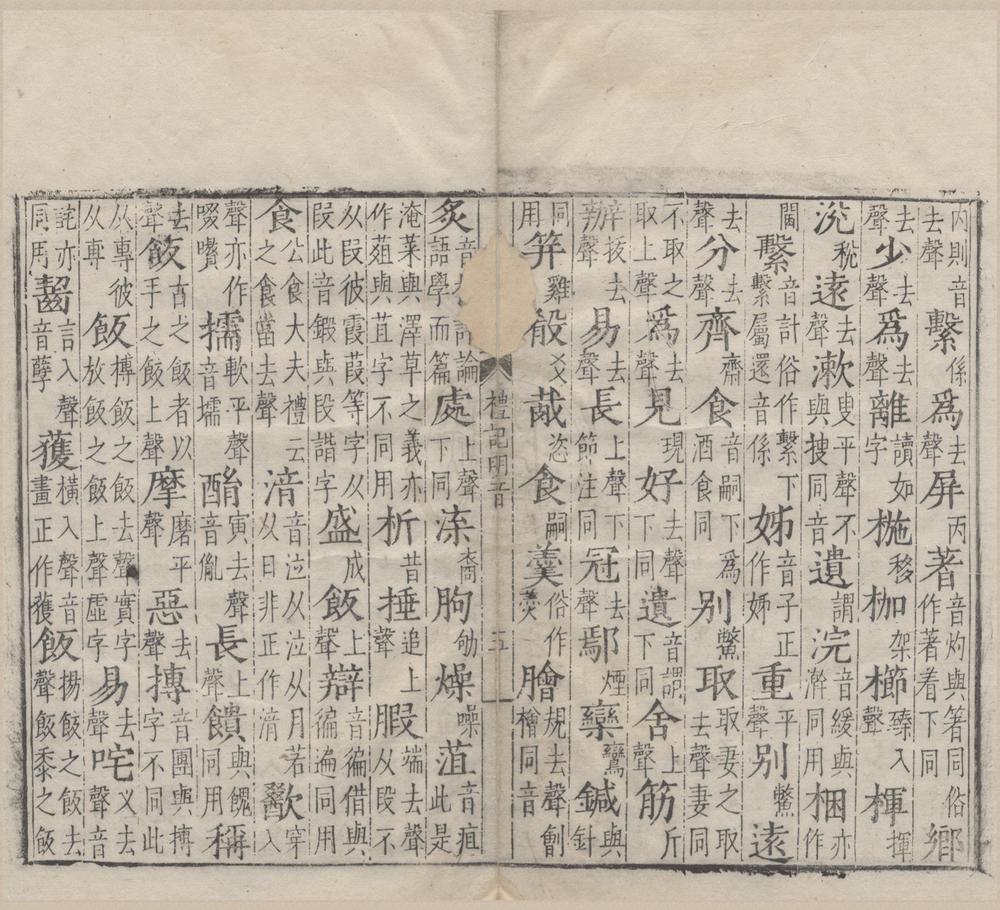 内則音去聲繫係爲去聲屏丙著音灼與著同俗作著看下同鄉
去聲少去聲爲去聲離讀如字椸移枷架櫛臻入聲楎揮
涗稅遠去聲漱叟平聲不與捜同音遺謂浣音緩與澣同用梱亦作
閫繫音計俗作繫下繫屬還音係姊音子正作姉重平聲别鱉遠
去聲分去聲齊齋食音嗣下爲酒食同别鱉取取妻之取去聲妻同
不取之取上聲爲去聲見現好去聲下同遺音謂下同舍上聲筋斤
去聲易去聲長上聲下節注同冠去聲鄢煙欒鸞鍼與針
同用笄雞殽爻胾恣食嗣羹俗作羮膾規去聲劊檜同音
禮記明音 五
炙音論語學而篇處上聲下同喬朐劬燥噪菹音疽此是
淹菜與澤草之義亦作葅與苴字不同用析昔捶追上聲腶端去聲从段不
从叚彼霞葭等字从叚此音鍛與段諧字盛成飯上聲辯音徧借與徧遍同用
食公食大夫禮云之食當去聲湇音泣从泣从月若以日非正作湆歠穿入
聲亦作啜嚽擩軟平聲音壖酳寅去聲音胤長上聲饋與餽同用稱
去聲飯古之飯者以手之飯上聲摩磨平聲惡去聲摶音團與搏字不同此
从專彼从専飯摶飯之飯去聲實字放飯之飯上聲虛字易去聲咤义去聲音
詫亦同丏齧言入聲音孽獲橫入聲音畫正作蒦飯揚飯之飯去聲飯黍之飯